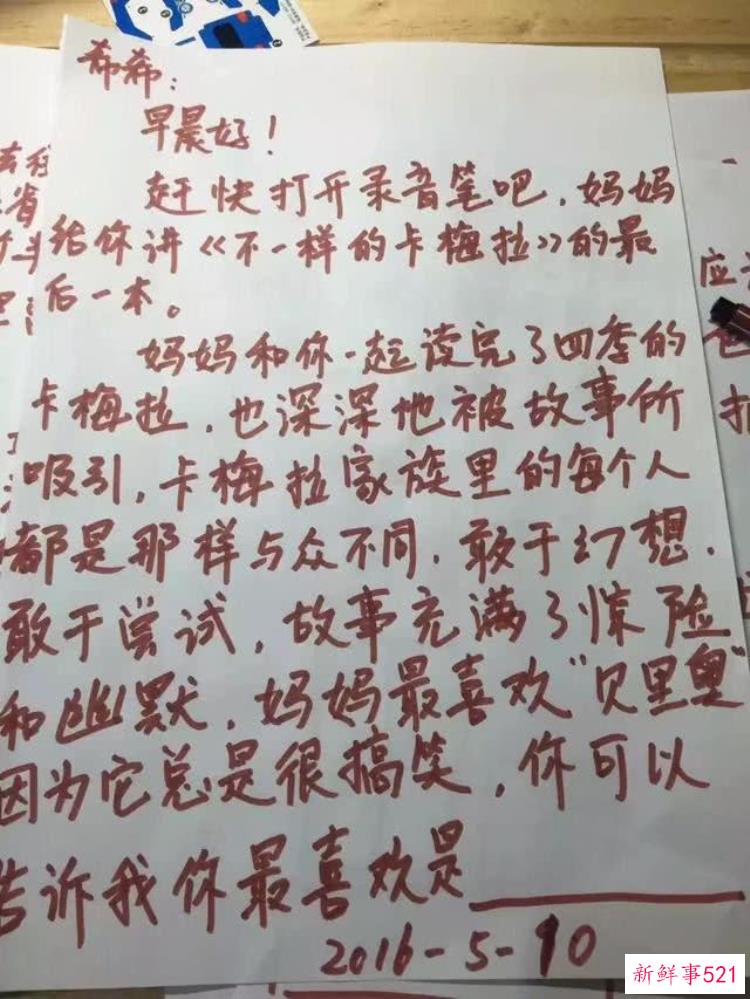 希希：
早晨好！
赶快打开录音笔吧，妈妈
给你讲《不一样的卡梅拉》的最
后一本。
妈妈和你一起读完了四季的
卡梅拉，也深深地被故事所
吸引，卡梅拉家族里的每个人
都是那样与众不同，敢于幻想，
敢于尝试，故事充满了惊险
和幽默，妈妈最喜欢“贝里奥”
因为它总是很搞笑，你可以
告诉我你最喜欢是
2016-5-10
应
新鲜事521